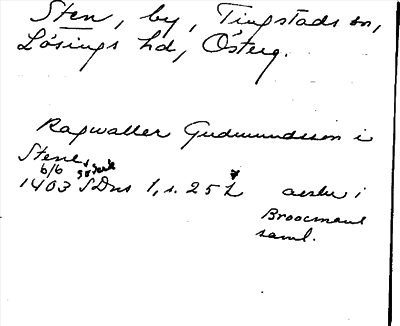 Sten, by, Tingstads sn,
Lösings hd, Österg.
Ragwalter Gudmundsson i
Stene
6/6
1403 SDns 1, s. 252 avskr i
Broocmans
saml.